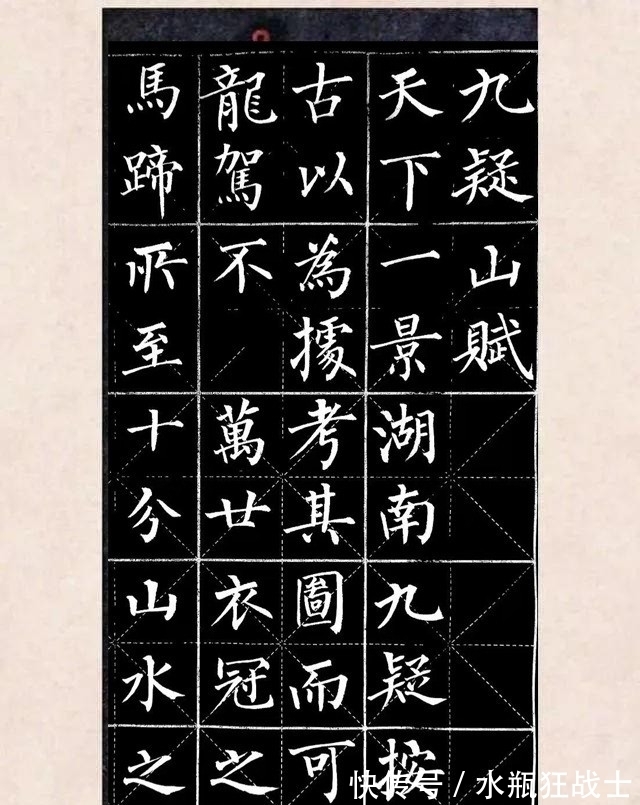 九疑山賦
天下一景湖南九疑按
古以為據考其圖而可
龍駕不 萬廿衣冠之
馬蹄所至十分山水之
快传号 / 水瓶狂战士